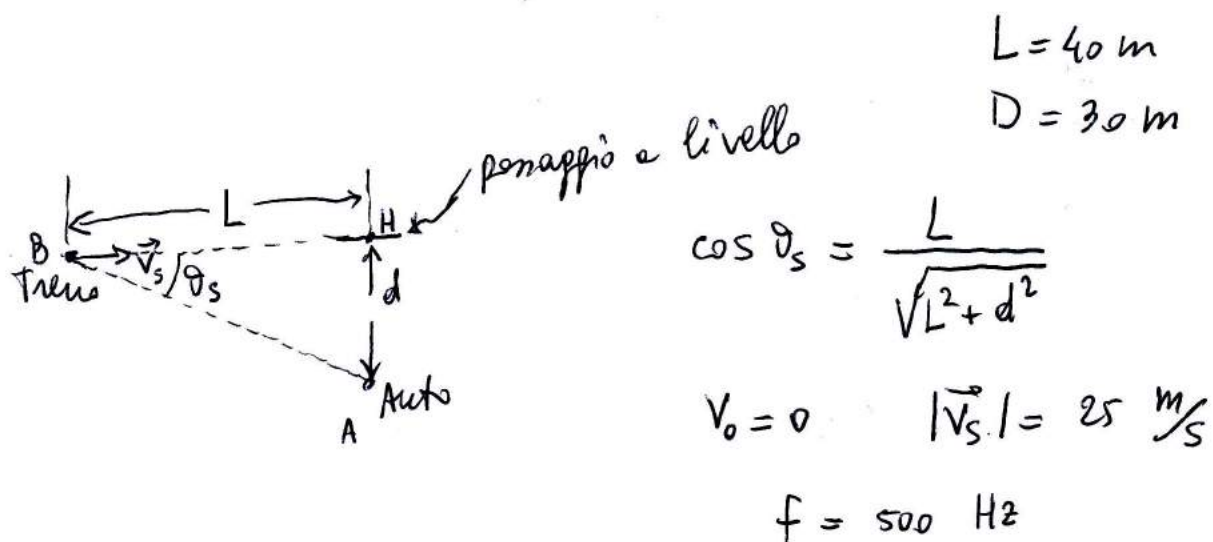 L = 40 m
D = 30 m
passaggio a livello
L
H
B
Treno
v⃗s
θs
d
A
Auto
cos θs = L / √(L² + d²)
V₀ = 0 |V⃗s.| = 25 m/s
f = 500 Hz